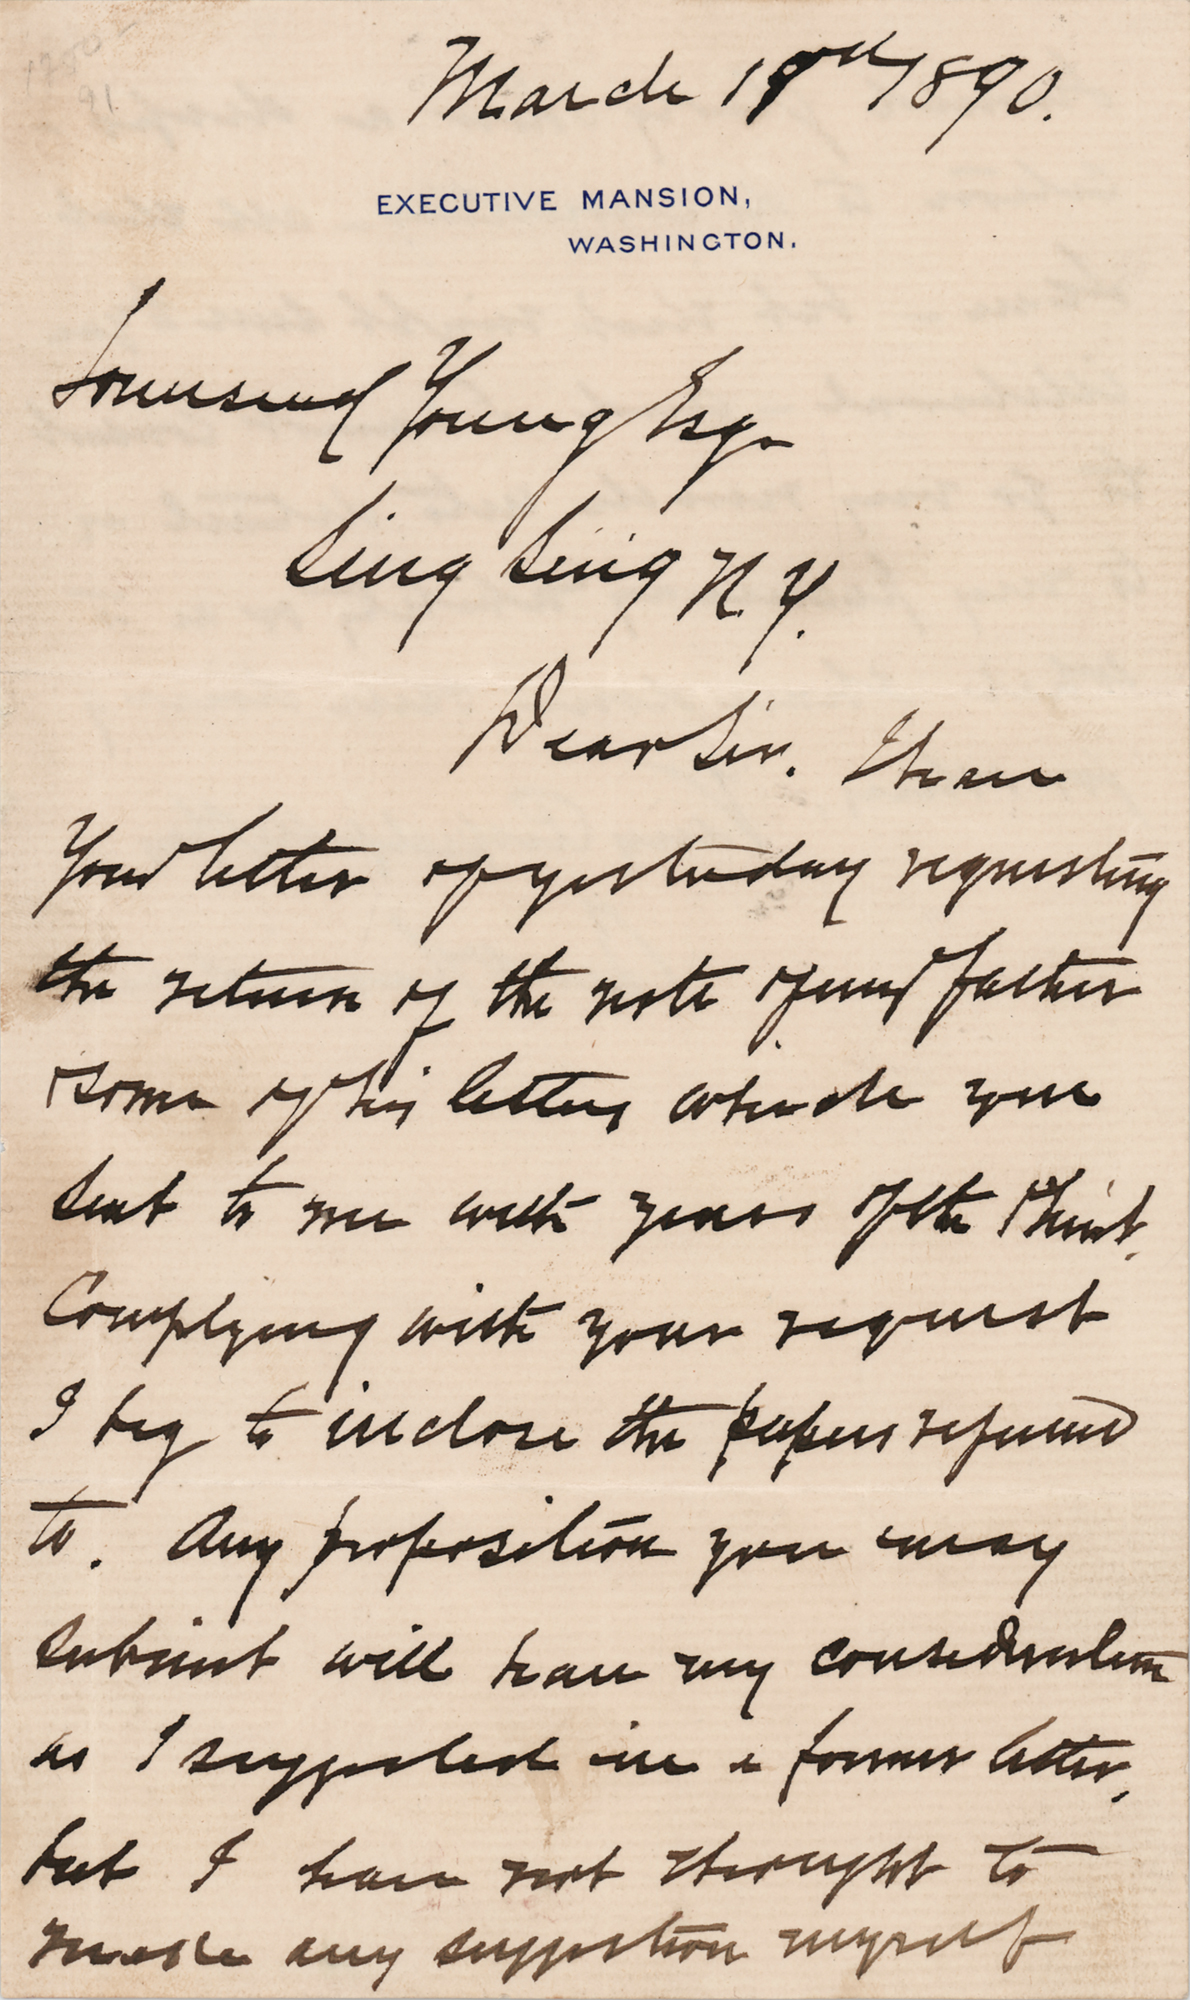 March 19th 1890.
EXECUTIVE MANSION,
WASHINGTON.
Townsend Young Esq.
Sing Sing N.Y.
Dear Sir. I have
Your letter of yesterday requesting
the return of the note of my father
& some of his letters which you
sent to me with yours of the 1st inst.
Complying with your request
I beg to inclose the papers referred
to. Any proposition you may
submit will have my consideration
as I suggested in a former letter,
but I have not thought to
make any suggestion myself